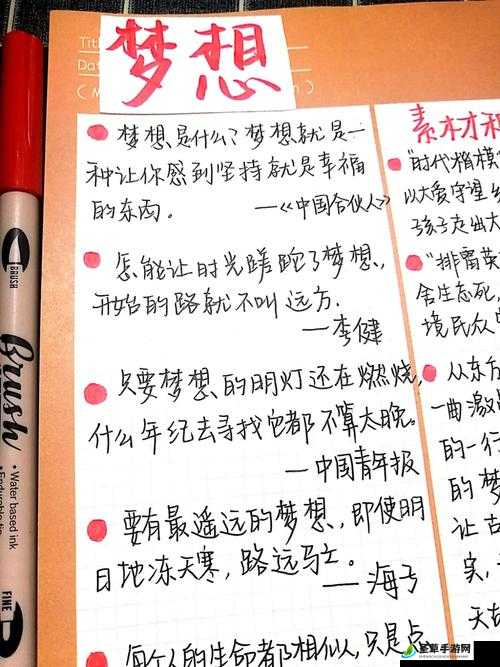 Brush
BRUSH
Water based ink
FINE
Tit
Dat
梦想
梦想是什么?梦想就是一
种让你感到坚持就是幸福
的东西。
—《中国合伙人》
怎能让时光蹉跎了梦想,
开始的路就不叫远方.
—李健
只要梦想的明灯还在燃烧,
什么年纪去寻找它都不算太晚。
—中国青年报
要有最遥远的梦想,即使明
日地冻天寒,路远马亡。
—海子
每个人的生命都相似人,只是点
素材积
"时代楷模"
以大爱守望
孩子走出大
"排雷英
舍生忘死,
境民众
从东方
一曲激
的一行
的梦
让古
实,
天
圣草手游网